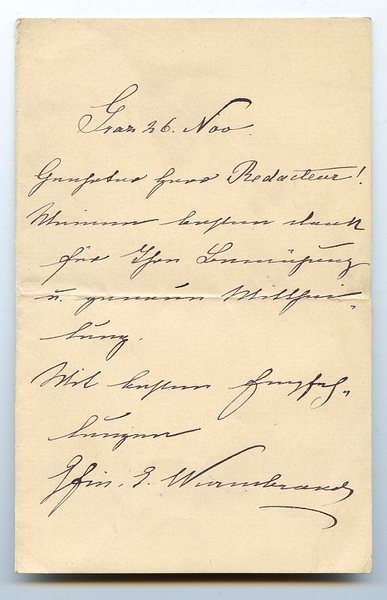 Graz 26. Nov.
Geehrter Herr Redacteur!
Meinen besten Dank
für Ihre Bemühung
u. genaue Mitthei-
lung.
Mit besten Empfeh-
lungen
Gfin. G. Wurmbrand